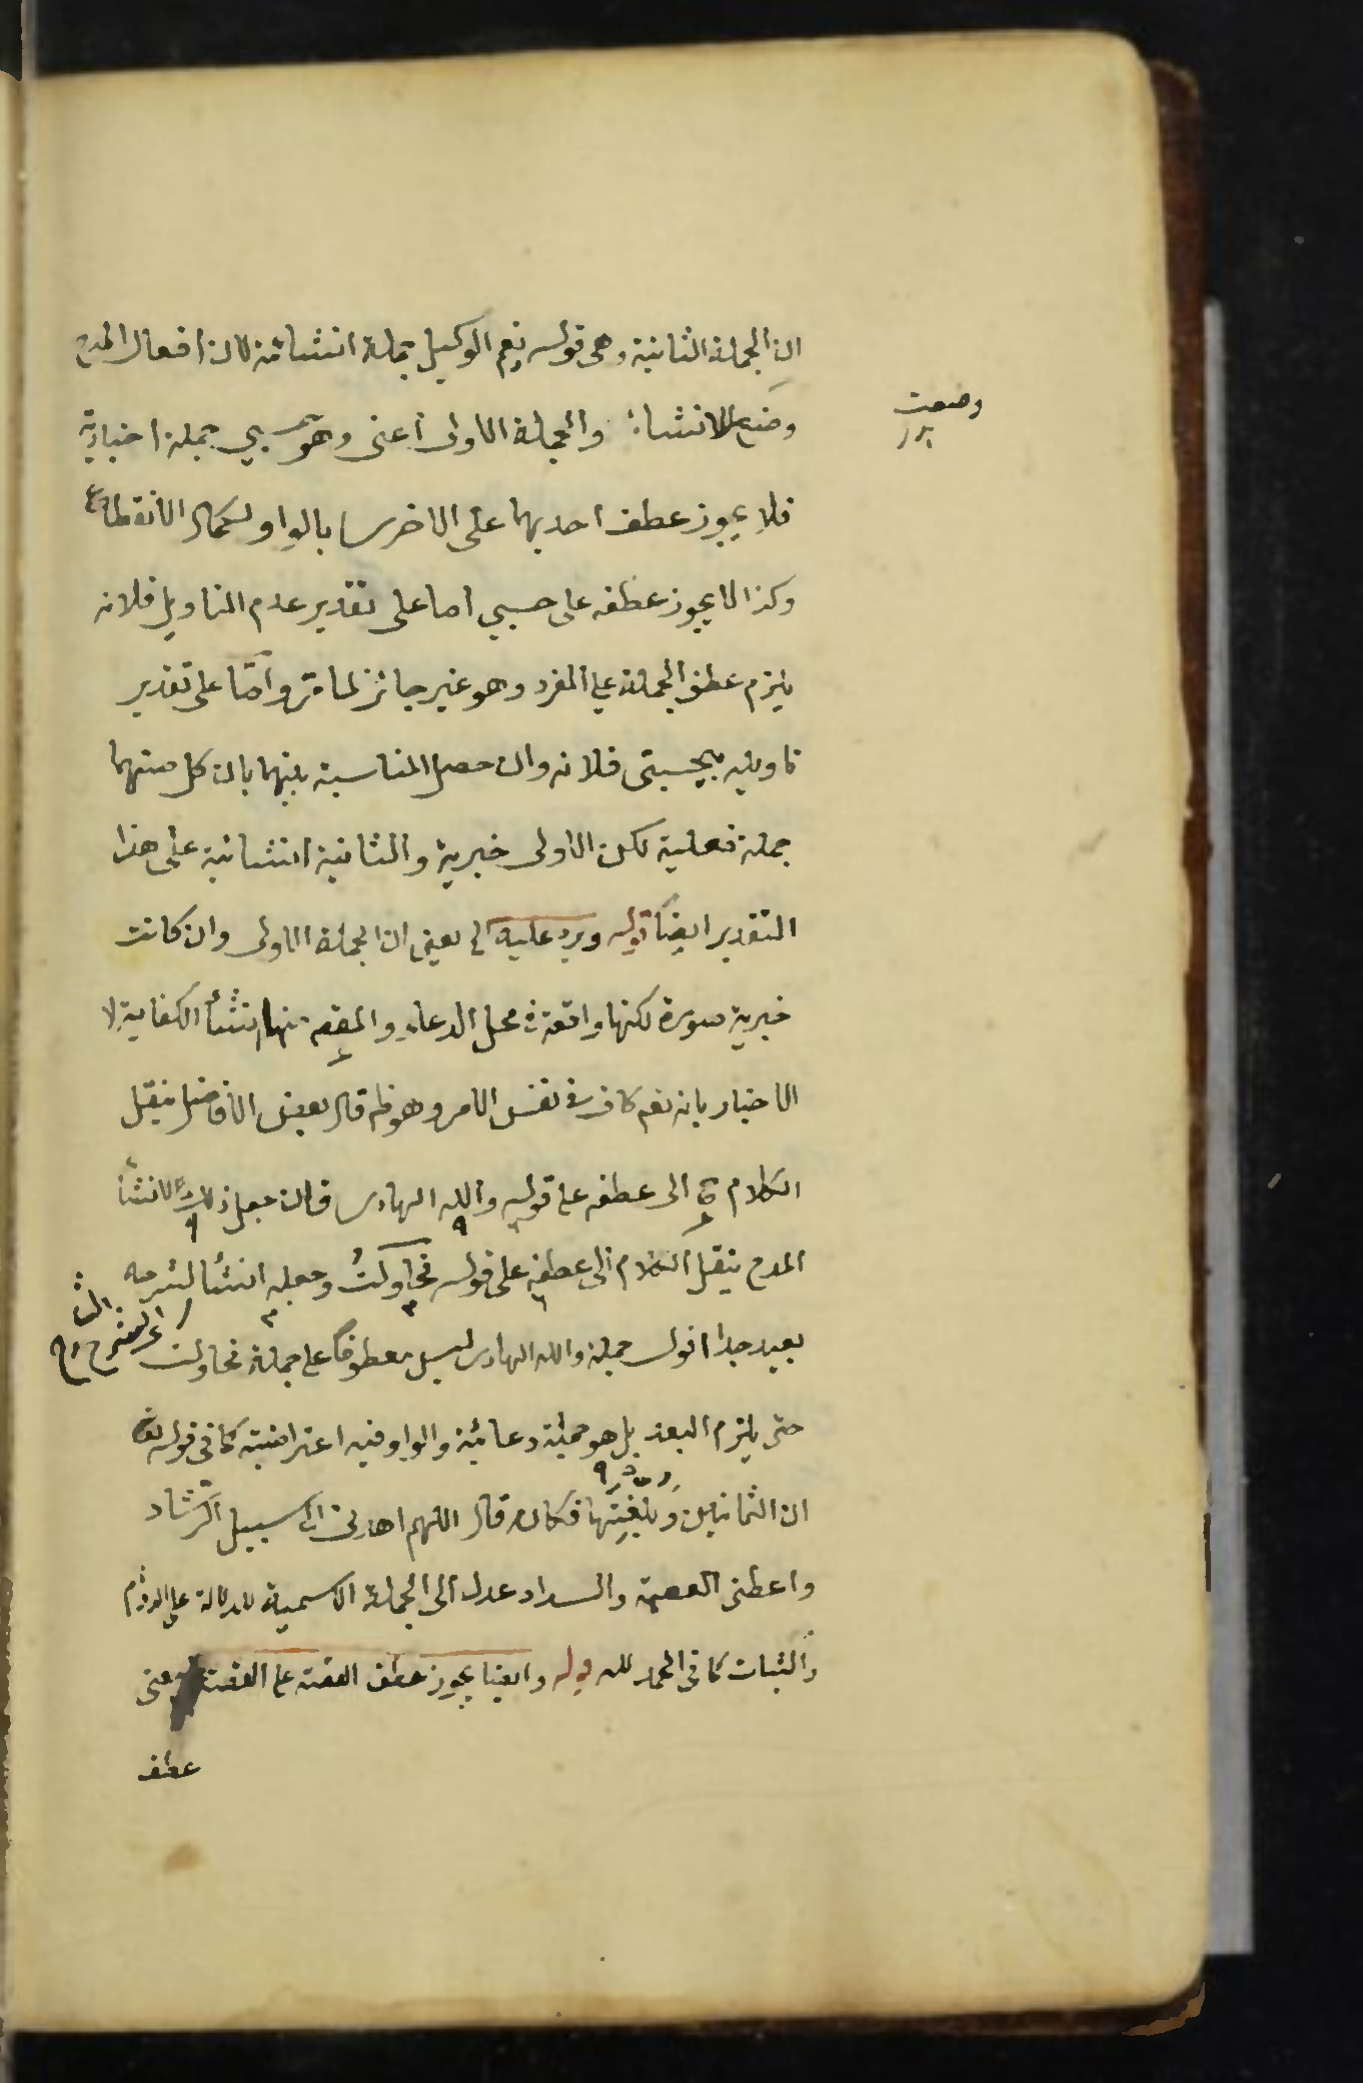 ان الجملة الثانية وهى قوله نعم الوكيل جملة انشائية لان افعال المدح
وضع للانشاء والجملة الاولى اعنى وهو حسبي جملة اخبارية
وضعت
فلا يجوز عطف احديهما على الاخرى بالواو لكمال الانقطاع
وكذا لا يجوز عطفه على حسبي اما على تقدير عدم التاويل فلانه
يلزم عطف الجملة على المفرد وهو غير جائز لما مر واما على تقدير
تاويله بيحسبنى فلانه وان حصل المناسبة بينهما بان كل منهما
جملة فعلية لكن الاولى خبرية والثانية انشائية على هذا
التقدير ايضا قوله ويرد عليه الخ يعنى ان الجملة الاولى وان كانت
خبرية صورة لكنها واقعة فى محل الدعاء والمقصود منها انشأ الكفاية لا
الاخبار بانه تعم كاف فى نفس الامر وهو ظ قال بعض الافاضل ينقل
الكلام ح الى عطفه على قوله والله الهادى فان جعل ذلك لانشأ
المدح ينقل الكلام الى عطفه على قوله فحاولت وجعله انشأ لشرحه
بعيد جدا اقول جملة والله الهادى ليس معطوفا على جملة فحاولت
حتى يلزم البعد بل هو جملة دعائية والواو فيه اعتراضية كما فى قوله
ان الثمانين وبلغتها فكانه قال اللهم اهدنى الى سبيل الرشاد
واعطنى العصمة والسداد عدل الى الجملة الاسمية للدلالة على الدوام
والثبات كما فى الحمد لله قوله وايضا يجوز عطف القصة على القصة يعنى
عطف